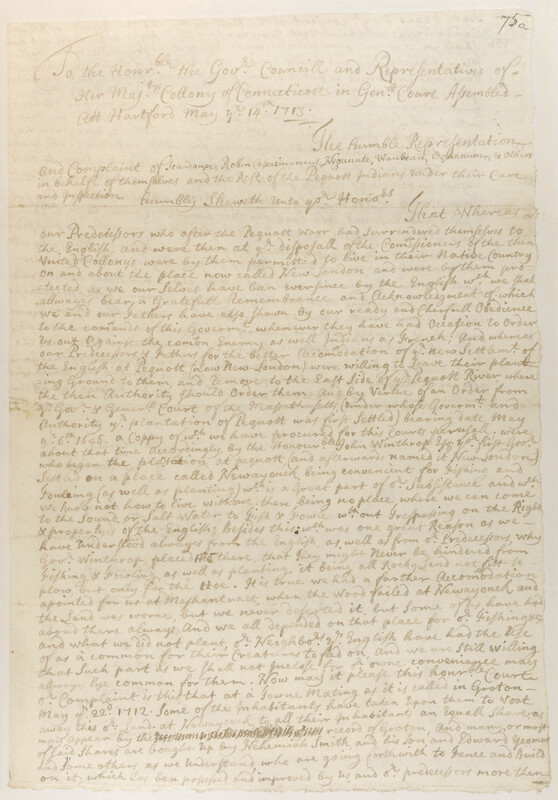 75a
To the Honr.ble the Govr. Councill and Representatives of
Her Majtys Collony of Connecticott in Genll Court Assembled
Att Hartford May ye 14th 1713.
The humble Representation
and Complaint of Robin Wanbean, & Others
in behalfe of themselves and the Rest of the Pequott Indians under their Care
and Inspection humbly Sheweth Unto yor. Honors
That Whereas
our Predecessors who after the Pequatt Warr had Surrendered themselves to
the English, and were then at ye disposall of the Comissioners of the then
United Collonys were by them permitted to live in their Native Country
on and about the place now called New London, and were by them pro-
tected, as we our Selves have ben ever since by the English wch. we shall
Allways bear a Gratefull Remembrance and Acknowledgment of which
we and our Fathers have also shown By our ready and Cherfull Obedience
to the comands of this Governt. whenever they have had Occasion to Order
Us out Against the comon Enemy as well Indians as French. And whereas
our Predecessors & Fathers for the better Accomodation of ye New Settlemt. of
the English at Pequott (now New London) were willing to Leave their plant-
ing Ground to them, and Remove to the East Side of ye Pequott River where
the then Authority should Order them. And by Virtue of an Order from
ye Govr. & Generll Court of the Massathusetts (under whose Governt. and
Authority ye plantation of Pequott was first Settled) bearing date May
ye 6th 1646. a Coppy of wch. we have procured for this Courts perusall, were
about that time Accordingly, by the Honourable John Winthrop Esqr. first Govr.
who began the plantation at pequott (and afterwards named it New London)
Seated on a place called Newayonck being convenient for Fishing and
Fowleing (as well as planting) wch. is a Great part of or. Subsistance and wch.
We know not how to live without, there being no place where we can come
to the Sound, or Salt Water to Fish & Fowle wthout Trespassing on the Right
& property of the English; Besides this wch. was one great Reason as we
have Understood always from the English as well as from or. Predecessors, why
Govr. Winthrop placed there, that they might Never be hindered from
Fishing & Fowling, as well as planting, it being all Rocky Land not fit to
plow, but only for the Hoe. It is true we had a farther Accomodation
apointed for us at Meshantuxet, when the Wood failed at Newayonck, and
the Land was worne, but we never deserted it, but Some of us have had
abode there always And we all depended on that place for or. Fishing &c
and what we did not plant, or. Neighbors. ye English have had the Use
of as a Common for their Creatures to feed on, and we are Still willing
that Such part as we shall not Inclose for or. owne conveniance may
always lye common for them. Now may it please this honrble Court
or. Complaint is this that at a Towne Meting as it is called in Groton
May ye 22d 1712. Some of the Inhabitants have taken upon them to Voat
away this or. Land at Newayonck to all their Inhabitants an Equall Share, as
may appear by the record of Groton. And many or most
of said Shares are bought up by Nehemiah Smith, and his Son and Edward Yeomans
and Some others as we Understand who are going forthwith to Fence and build
on it; which has ben posessed and improved by us and or. predecessors more then